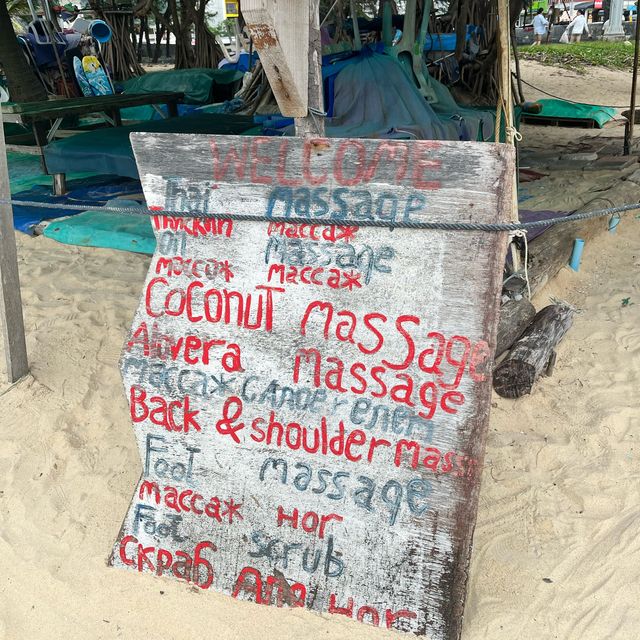 WELCOME
Thai massage
Тайский массаж
oil massage
массаж массаж
Coconut massage
Alovera massage
массаж с алое вреем
Back & shoulder mass
Foot massage
массаж ног
Foot scrub
скраб для ног